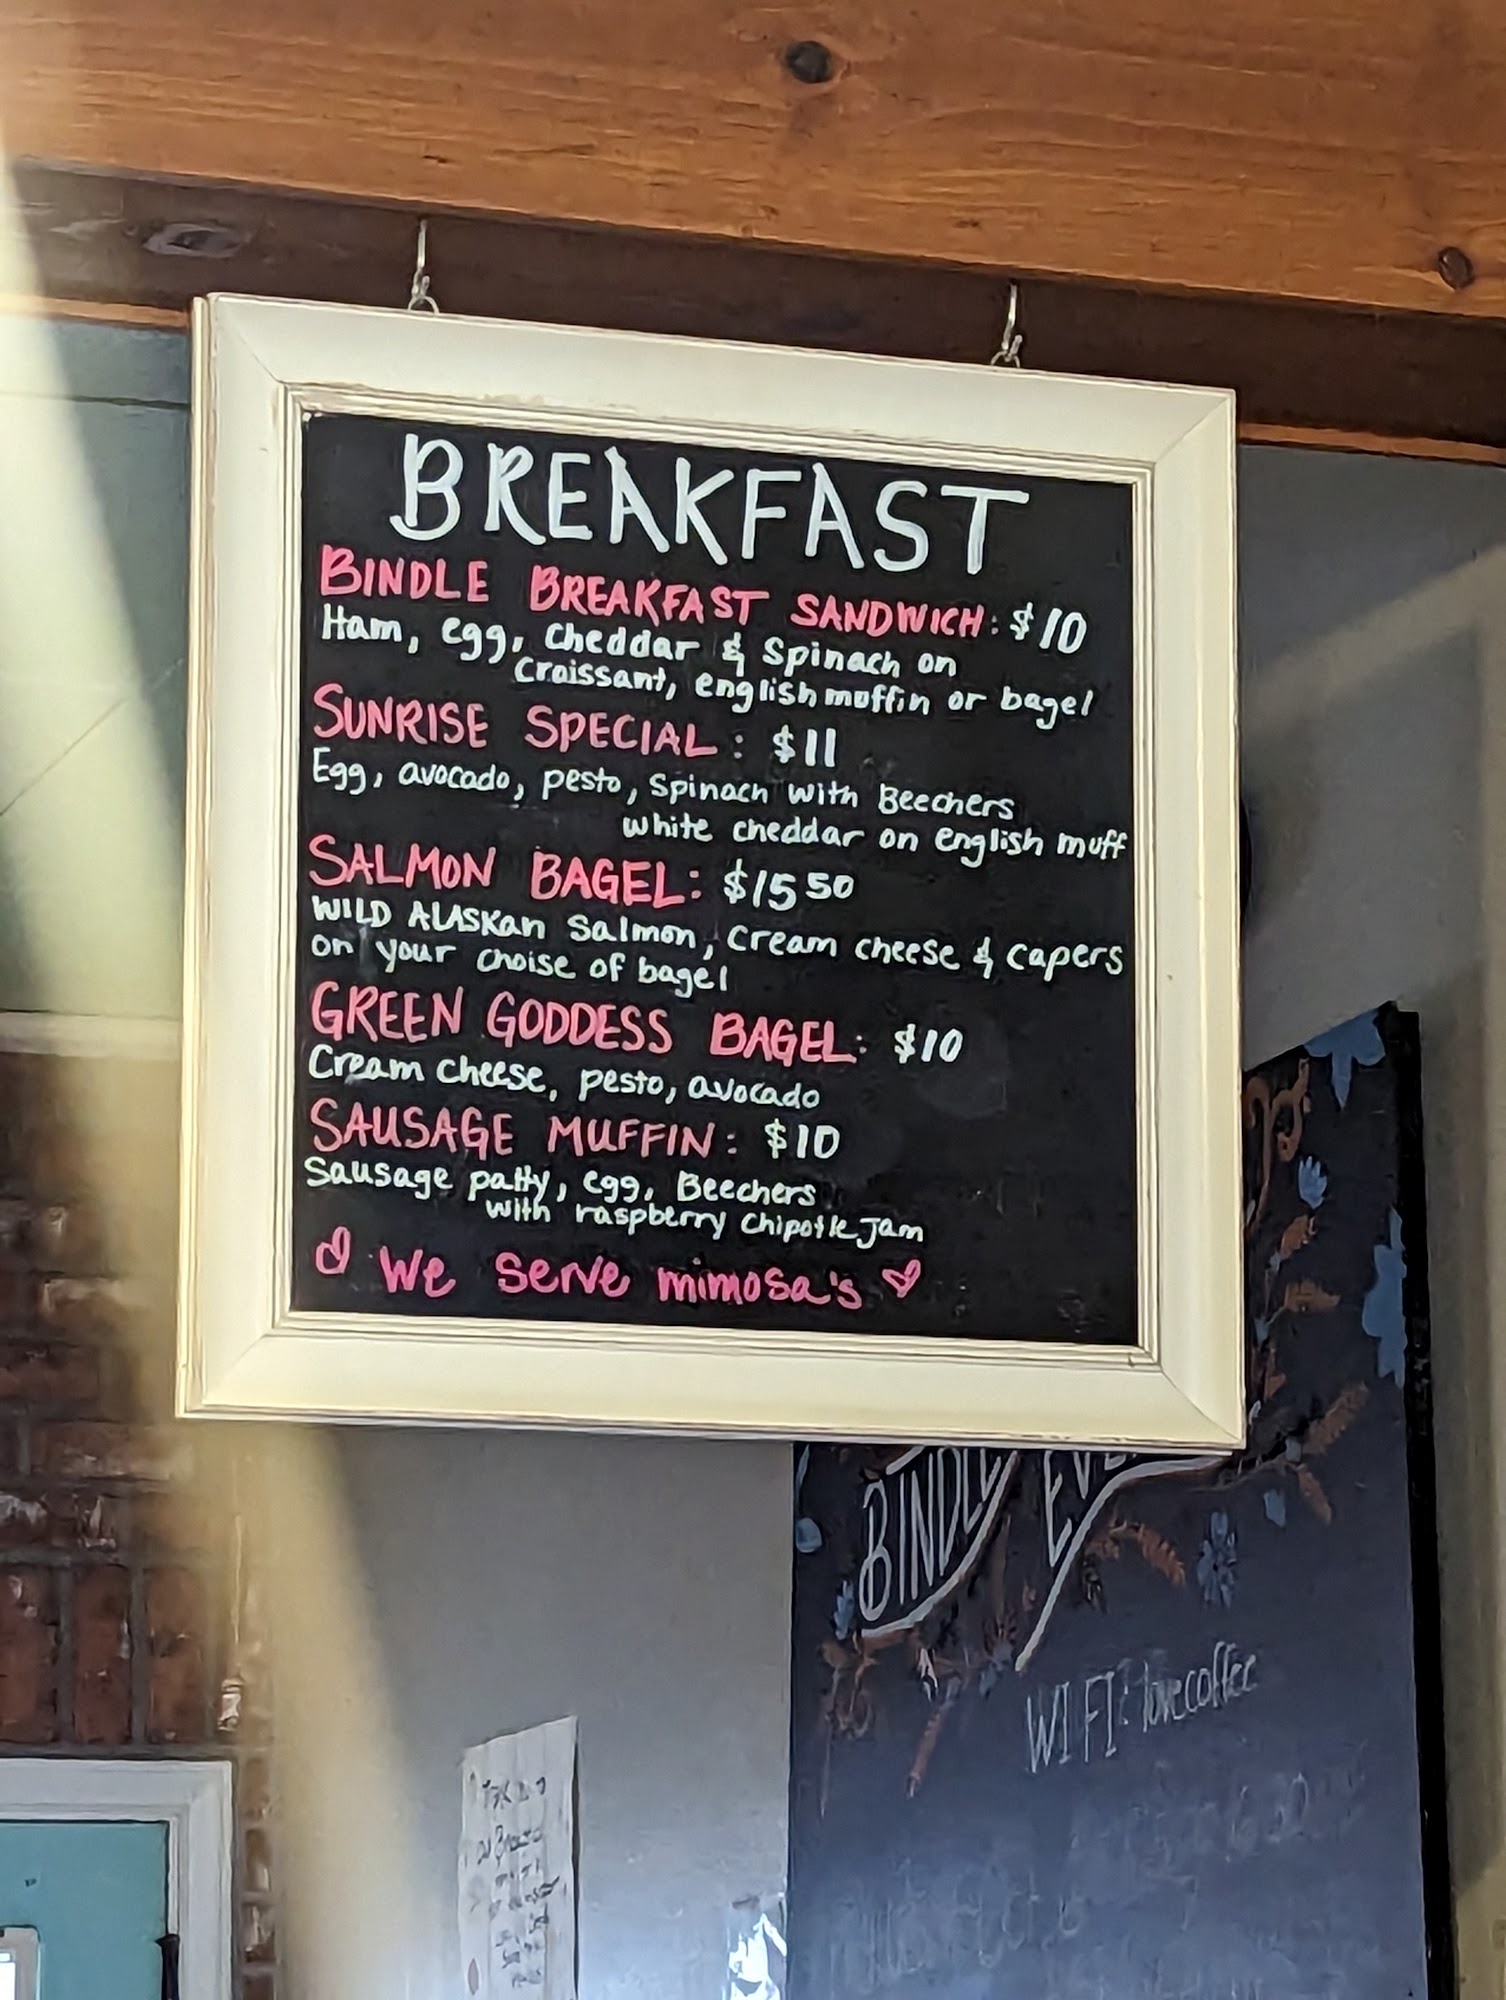 BREAKFAST
BINDLE BREAKFAST SANDWICH: $10
Ham, egg, cheddar & Spinach on
croissant, english muffin or bagel
SUNRISE SPECIAL: $11
Egg, avocado, pesto, spinach with Beechers
white cheddar on english muff
SALMON BAGEL: $15 50
WILD ALASKAN Salmon, cream cheese & capers
on your choise of bagel
GREEN GODDESS BAGEL: $10
Cream cheese, pesto, avocado
SAUSAGE MUFFIN: $10
Sausage patty, egg, Beechers
with raspberry chipotle jam
We serve mimosa's
BINDLE
WIFI: lovecoffee